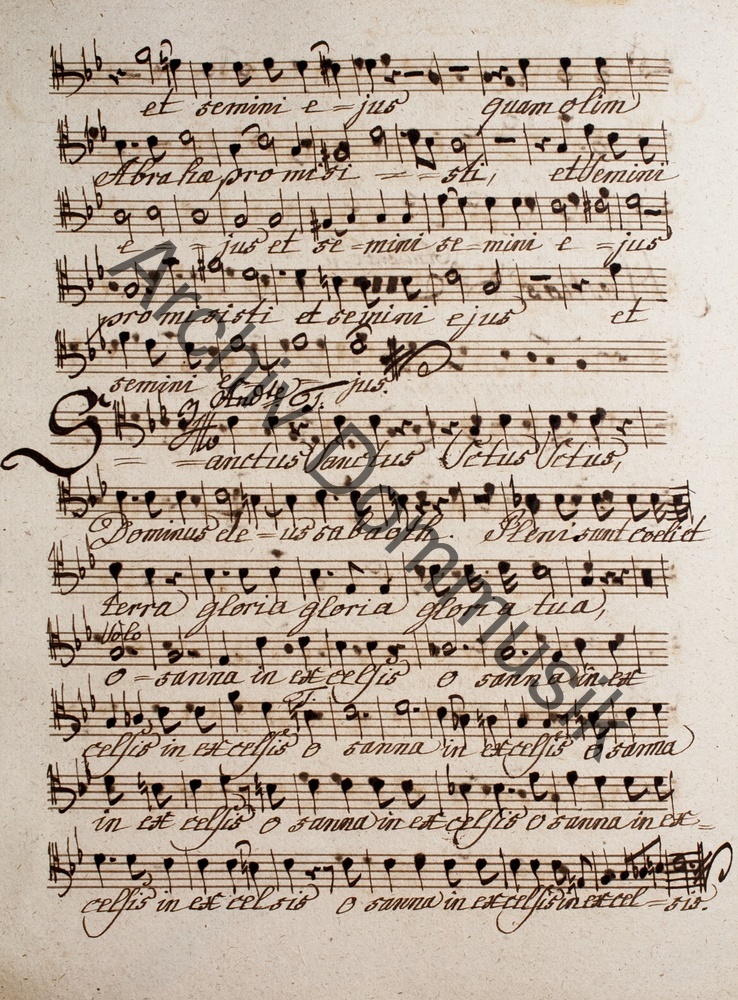 et semini e - jus quam olim
Abrahæ promisi - - sti, et Semini
e - - jus et se - mini se - mini e - jus
promisisti et semini ejus et
semini e jus.
Andte
T.
S - - anctus Sanctus Sctus Sctus,
Dominus de - us sabaoth. Pleni sunt coeli et
terra gloria gloria gloria tua,
Solo
o - sanna in excelsis o sanna in ex
T.
celsis in excelsis o sanna in excelsis o sanna
in excelsis o sanna in excelsis o sanna in ex -
celsis in excelsis o sanna in excelsis in excel - sis.
Archiv Dommusik